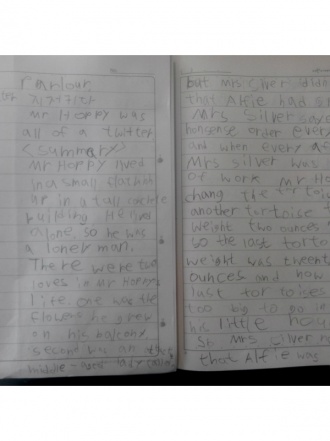 Parlour
Mr Hoppy was
all of a twitter
<summary>
Mr Hoppy lived
in a small flat high
up in a tall concrete
building. He lived
alone, so he was
a loner man.
There were two
loves in Mr Hoppy
life one was the
flowers he grew
on his balcony
second was an
middle-aged lady
but Mrs silver didn
that Alfie had s
Mrs Silver say
nonsense order every
and when every
Mrs silver was
of work Mr Ho
chang the tortois
another tortoise
weight two ounces
so the last torto
weight was
ounces and now
last tortoices
too big to go in
his little hou
So Mrs silver
that Alfie was